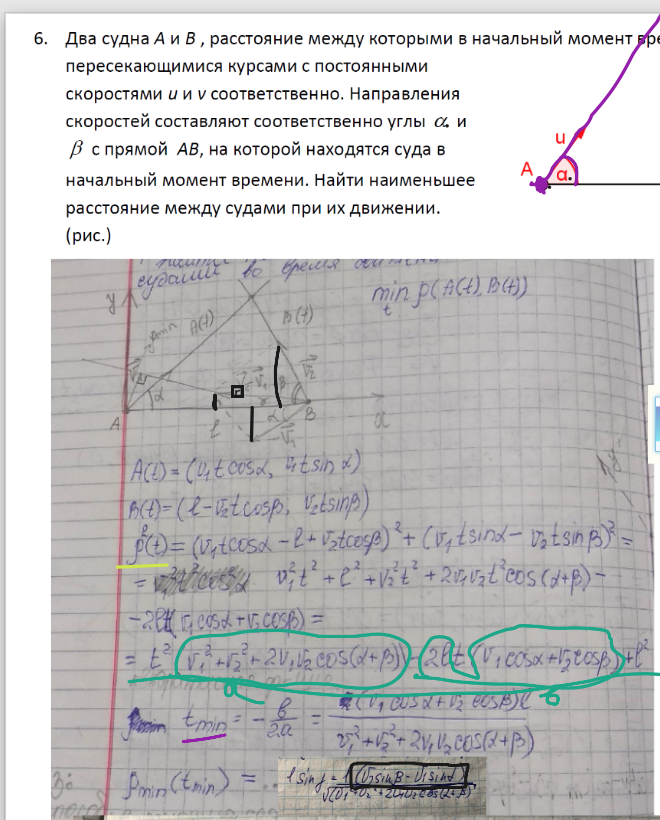 6. Два судна А и В , расстояние между которыми в начальный момент вре
пересекающимися курсами с постоянными
скоростями u и v соответственно. Направления
скоростей составляют соответственно углы α и
β с прямой АВ, на которой находятся суда в
начальный момент времени. Найти наименьшее
расстояние между судами при их движении.
(рис.)
u
A
α.
судами во время
min ρ(A(t), B(t))
t
y
ρmin
A(t)
B(t)
v₁
α
-v₁
β
v₂
A
l
α
B
-v₁
x
A(t) = (v₁t cosα, v₁t sinα)
B(t) = (l - v₂t cosβ, v₂t sinβ)
ρ²(t) = (v₁t cosα - l + v₂t cosβ)² + (v₁t sinα - v₂t sinβ)² =
= v₁²t² + l² + v₂²t² + 2v₁v₂t² cos(α+β) -
- 2lt(v₁cosα + v₂cosβ) =
= t²(v₁² + v₂² + 2v₁v₂cos(α+β)) - 2lt(v₁cosα + v₂cosβ) + l²
a
b
tmin = - b/2a = (v₁cosα + v₂cosβ)l / v₁² + v₂² + 2v₁v₂cos(α+β)
ρmin(tmin) = l sin γ = l (v₂sinβ - v₁sinα) / √(v₁² + v₂² + 2v₁v₂cos(α+β))